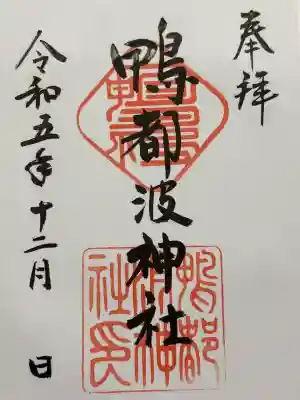 奉拝
鴨都波神社
鴨都波神社印
令和五年十二月 日